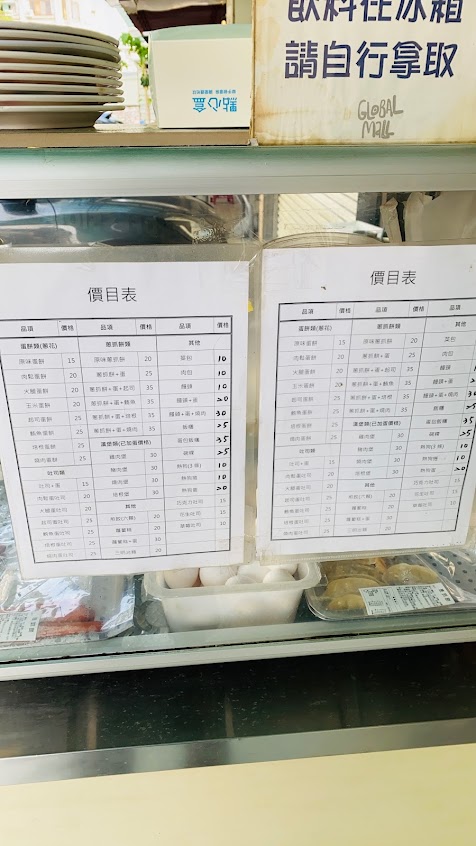 飲料在冰箱
請自行拿取
GLOBAL
MALL
點心盒
價目表
品項 價格 品項 價格 品項 價格
蛋餅類(蔥花) 蔥抓餅類 其他
原味蛋餅 15 原味蔥抓餅 20 菜包 10
肉鬆蛋餅 20 蔥抓餅+蛋 25 肉包 10
火腿蛋餅 20 蔥抓餅+蛋+起司 35 饅頭 10
玉米蛋餅 20 蔥抓餅+蛋+鮪魚 35 饅頭+蛋 20
起司蛋餅 25 蔥抓餅+蛋+培根 35 饅頭+蛋+燒肉 30
鮪魚蛋餅 25 蔥抓餅+蛋+燒肉 35 飯糰 25
培根蛋餅 25 漢堡類(已加蛋價格) 蛋包飯糰 35
燒肉蛋餅 25 雞肉堡 30 25
吐司類 豬肉堡 30 10
吐司+蛋 15 燒肉堡 30 10
肉鬆蛋吐司 20 培根堡 30 熱狗蛋 20
20 其他 巧克力吐司 15
起司蛋吐司 25 20 花生吐司 15
鮪魚蛋吐司 25 蘿蔔糕 20 草莓吐司 10
培根蛋吐司 25 蘿蔔糕+蛋 30
燒肉蛋吐司 25 20
價目表
品項 價格 品項 價格 品項
蛋餅類(蔥花) 蔥抓餅類 其他
原味蛋餅 15 原味蔥抓餅 20 菜包
肉鬆蛋餅 20 蔥抓餅+蛋 25 肉包
火腿蛋餅 20 蔥抓餅+蛋+起司 35 饅頭
玉米蛋餅 20 蔥抓餅+蛋+鮪魚 35 饅頭+蛋
起司蛋餅 25 蔥抓餅+蛋+培根 35 饅頭+蛋+燒肉
鮪魚蛋餅 25 蔥抓餅+蛋+燒肉 35 飯糰
培根蛋餅 25 漢堡類(已加蛋價格) 蛋包飯糰
燒肉蛋餅 25 雞肉堡 30
吐司類 豬肉堡 30
吐司+蛋 15 燒肉堡 30
肉鬆蛋吐司 20 培根堡 30 熱狗蛋
其他 巧克力吐司 15
起司蛋吐司 25 20 花生吐司 15
鮪魚蛋吐司 25 蘿蔔糕 20 草莓吐司 10
培根蛋吐司 25 蘿蔔糕+蛋 30
燒肉蛋吐司 25 20